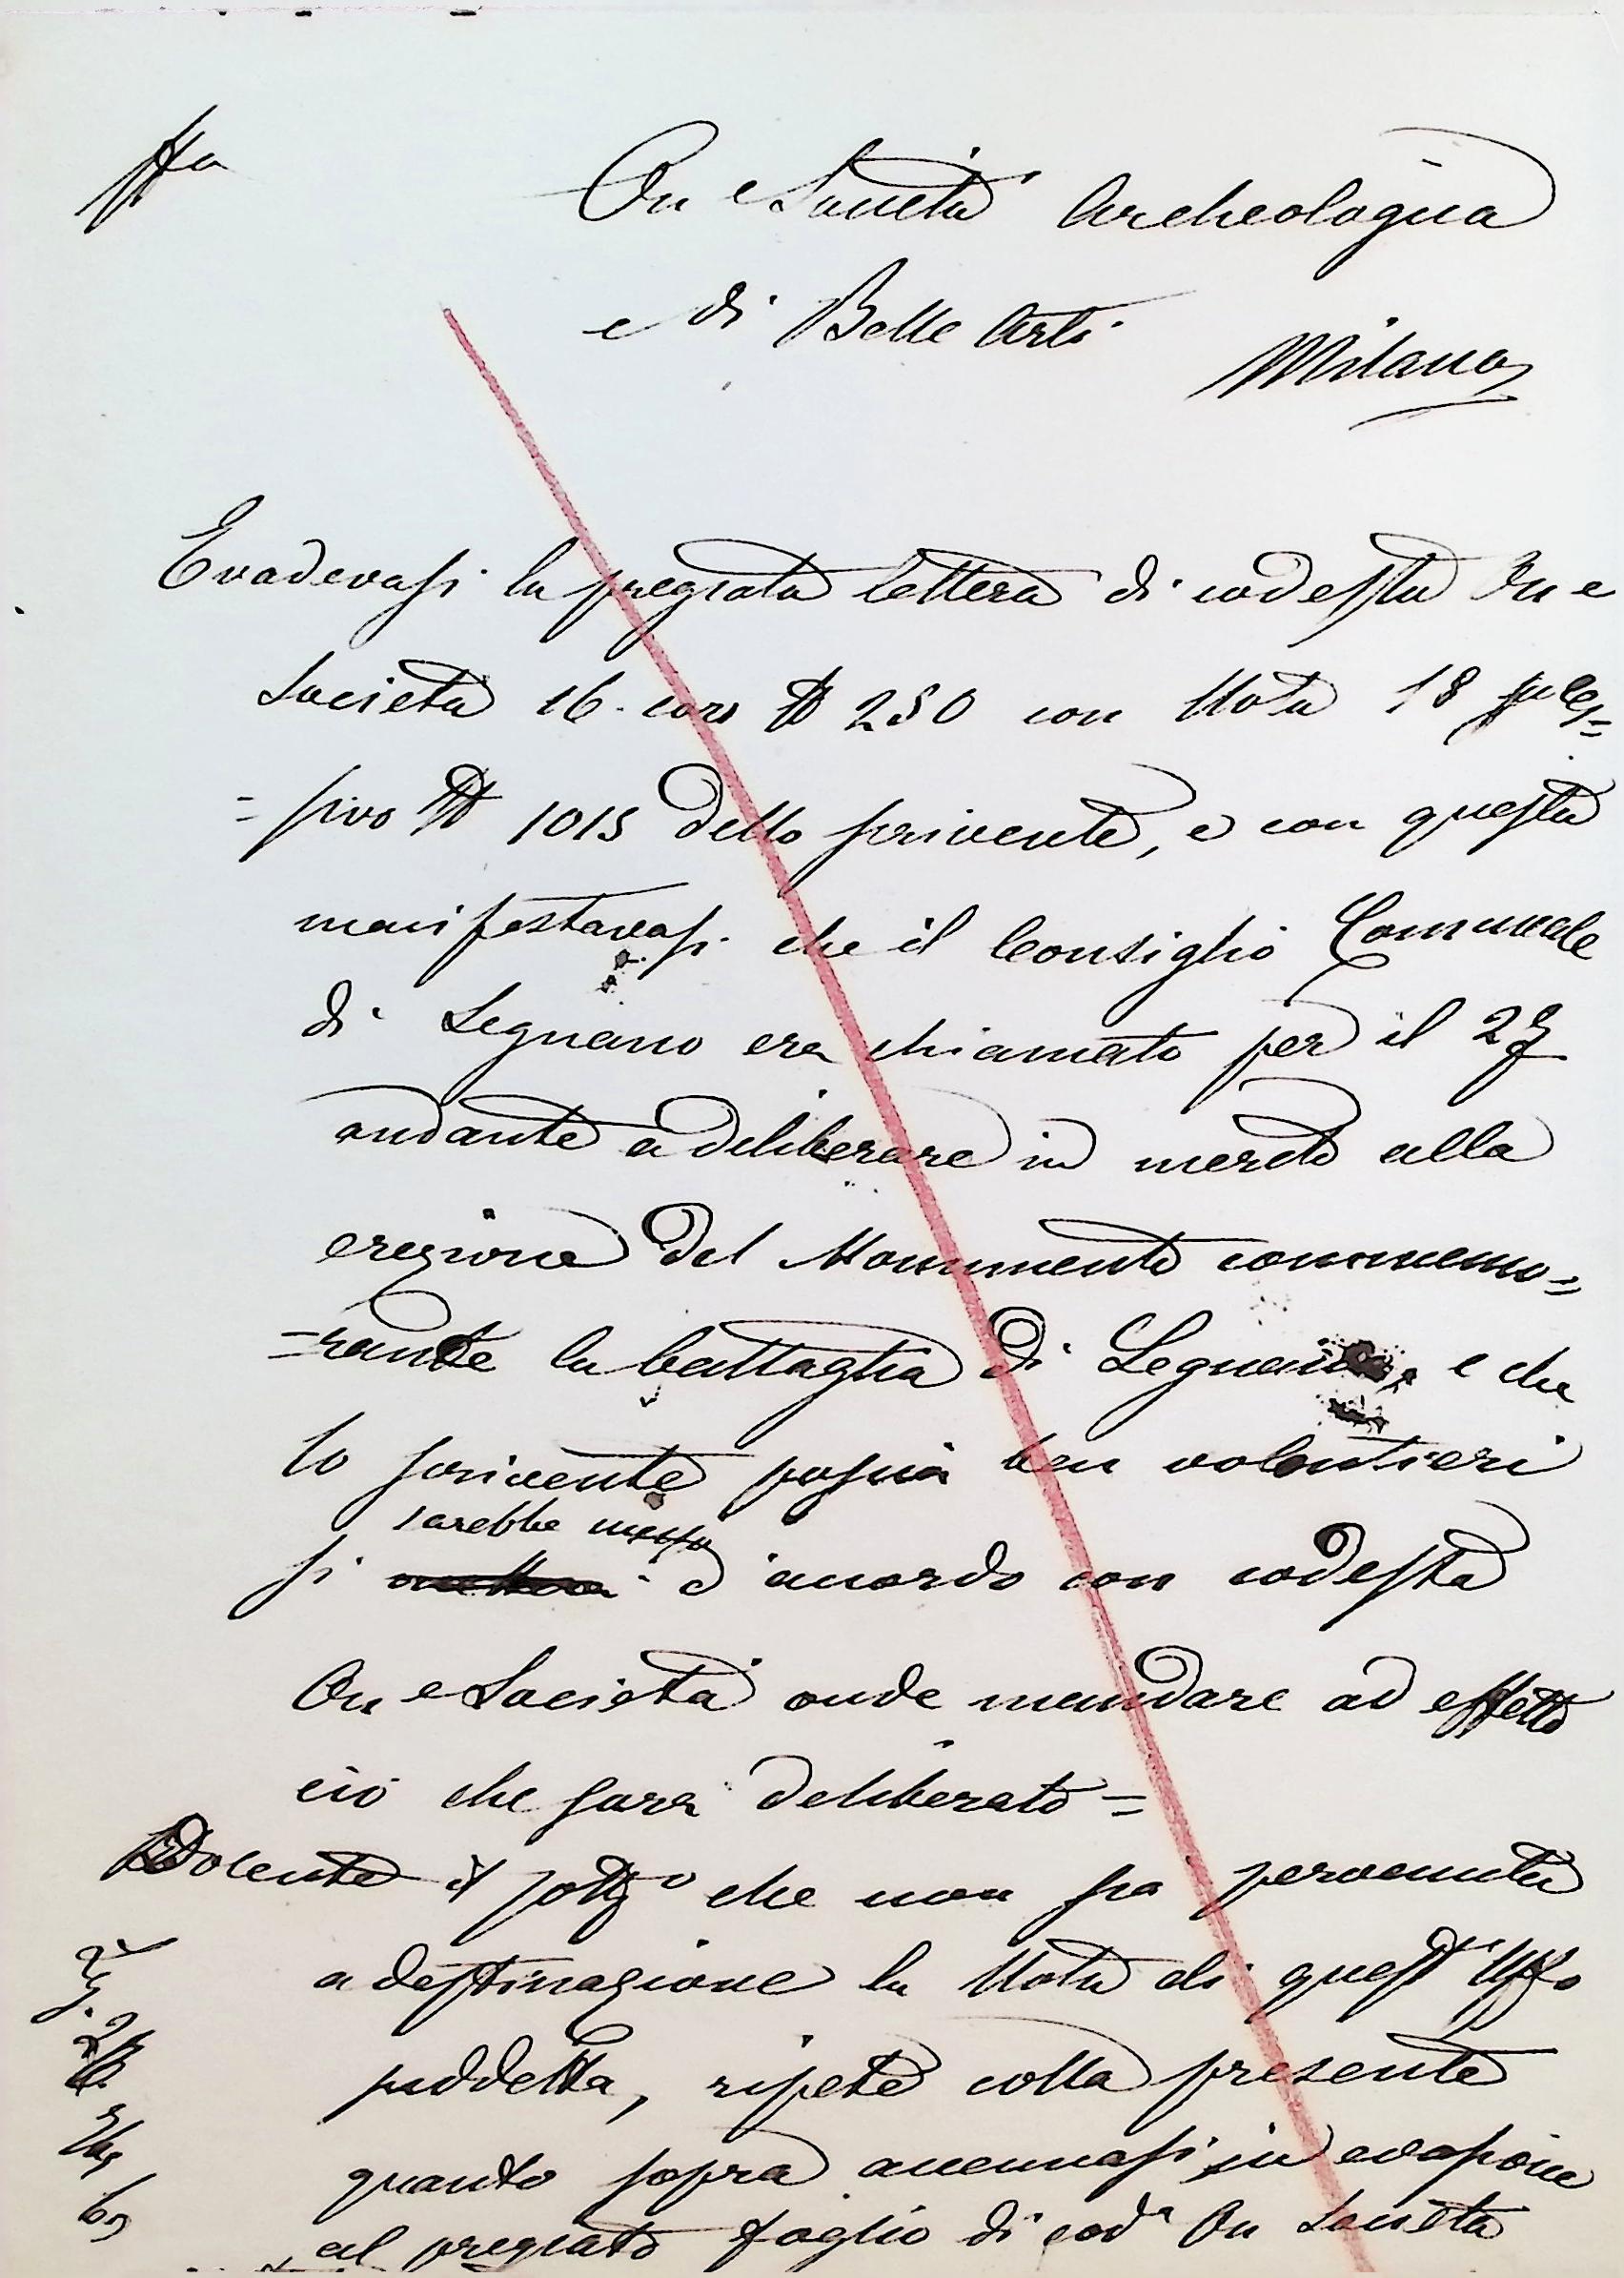 On e Società Archeologica
e di Belle Arti
Milano
Evadevasi la pregiata lettera di codesta On e
Società 16. corr N 250 con Nota 18
= sivo N 1015 dello scrivente, e con questa
manifestavasi che il Consiglio Comunale
di Legnano era chiamato per il 27
andante a deliberare in merito alla
erezione del Monumento commemo=
=rante la battaglia di Legnano, e che
lo scrivente poscia ben volontieri
sarebbe messo
si d'accordo con codesta
On e Società onde mandare ad effetto
ciò che sarà deliberato =
Dolente il che non sia pervenuta
a destinazione la Nota di quest'Uff.o
suddetta, ripete colla presente
quanto sopra accennasi in evasione
al pregiato foglio di cod.a On Società